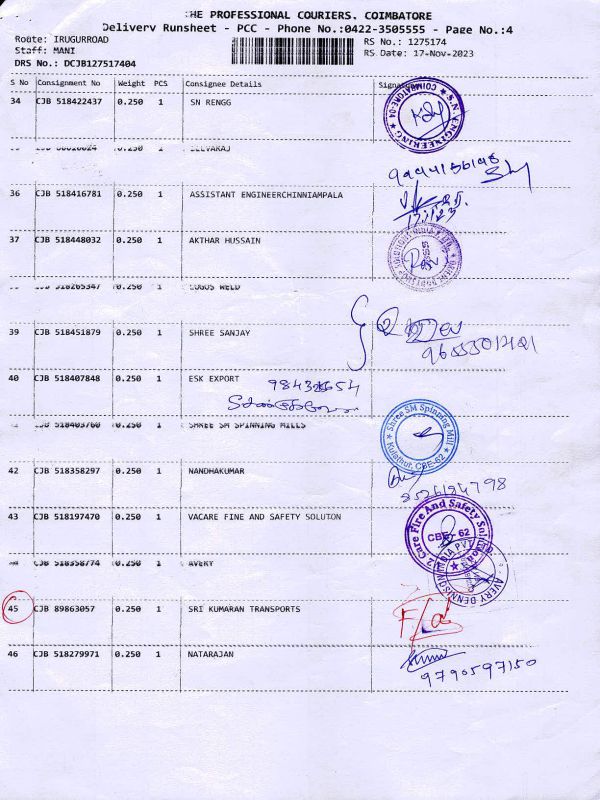 THE PROFESSIONAL COURIERS. COIMBATORE
Delivery Runsheet - PCC - Phone No.:0422-3505555 - Page No.:4
Route: IRUGURROAD
RS No.: 1275174
Staff: MANI
RS Date: 17-Nov-2023
DRS No.: DCJB127517404
S No Consignment No Weight PCS Consignee Details Signature
34 CJB 518422437 0.250 1 SN RENGG
S.N. ENGINEERING COIMBATORE-04
0.250 1 SELVARAJ
36 CJB 518416781 0.250 1 ASSISTANT ENGINEERCHINNIAMPALA
37 CJB 518448032 0.250 1 AKTHAR HUSSAIN
CJB 518265347 0.250 1 LOGOS WELD
39 CJB 518451879 0.250 1 SHREE SANJAY
40 CJB 518407848 0.250 1 ESK EXPORT
41 CJB 518403760 0.250 1 SHREE SM SPINNING MILLS
Shree SM Spinning Mill
CBE-62
42 CJB 518358297 0.250 1 NANDHAKUMAR
43 CJB 518197470 0.250 1 VACARE FINE AND SAFETY SOLUTON
Care Fire And Safety
CBE - 62
44 CJB 518358774 0.250 1 AVERY
AVERY DENNISON INDIA PVT
45 CJB 89863057 0.250 1 SRI KUMARAN TRANSPORTS
46 CJB 518279971 0.250 1 NATARAJAN
9790597150